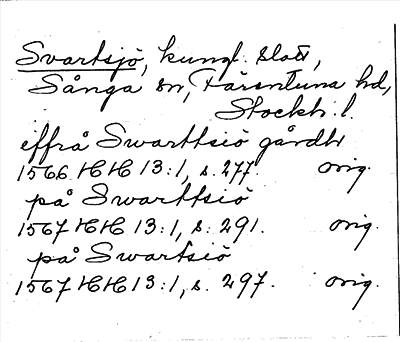 Svartsjö, kungl. slott,
Sånga sn, Färentuna hd,
Stockh. l.
effrå Swarttsiö gårdh
1566 HH 13:1, s. 277. orig.
på Swarttsiö
1567 HH 13:1, s. 291. orig.
på Swartsiö
1567 HH 13:1, s. 297. orig.